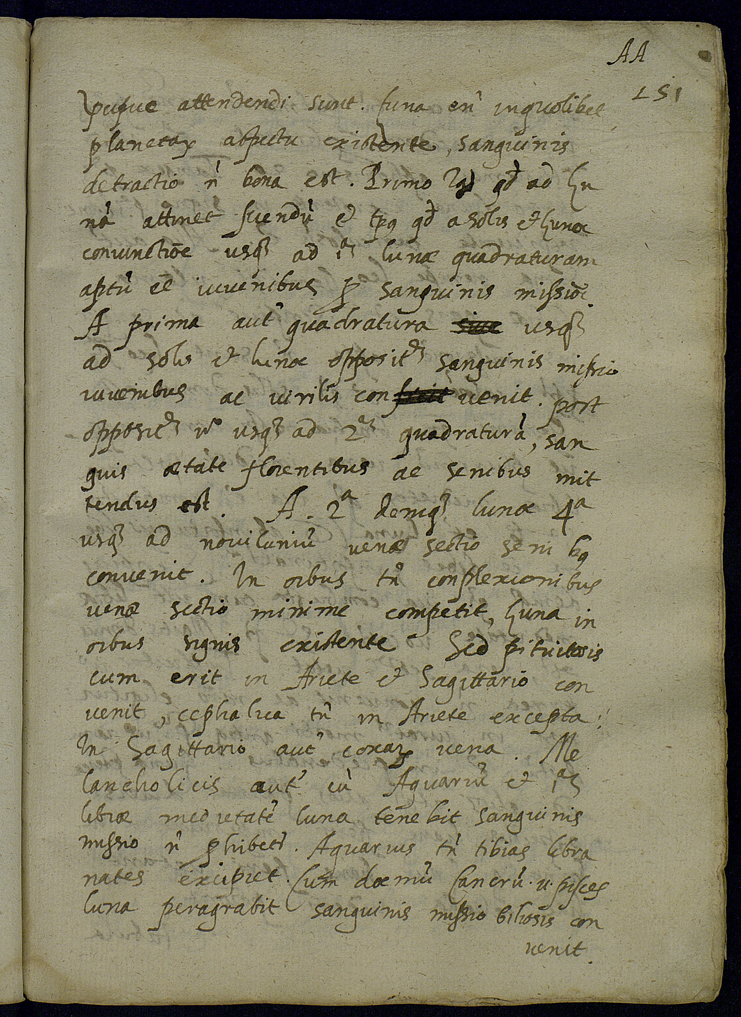 AA
151
attendendi sunt. Luna en̄ in quolibet
planetaȝ aspectu existente, sanguinis
detractio n̄ bona est. Primo qd ad Lu
nā attinet sciendū et qd a solis et lunæ
coniunctiōe usqȝ ad 1ā lunæ quadraturam
aptū eē iuvenibus p sanguinis missiōe.
A prima aut̄ quadratura usqȝ
ad solis et lunæ opposit sanguinis missio
iuvenibus ac virilis con venit. post
opposit v° usqȝ ad 2ā quadraturā, san
guis ætate florentibus ac senibus mit
tendus est. A. 2ª demqȝ lunæ 4ª
usqȝ ad noviluniū venæ sectio seni bq
convenit. In oībus tn̄ complexionibus
venæ sectio minime competit, Luna in
oībus signis existente Sed pituitosis
cum erit in Ariete et Sagittario con
venit, cephalica tn̄ in Ariete excepta:
In Sagittario aut̄ coxaȝ vena. Me
lancholicis aut̄ cū Aquariū et 1ā
libræ medietatē luna tenebit sanguinis
missio n̄ phibet. Aquarius tn̄ tibias libra
nates excipiet. Cum Cancrū v pisces
luna peragrabit sanguinis missio biliosis con
venit.